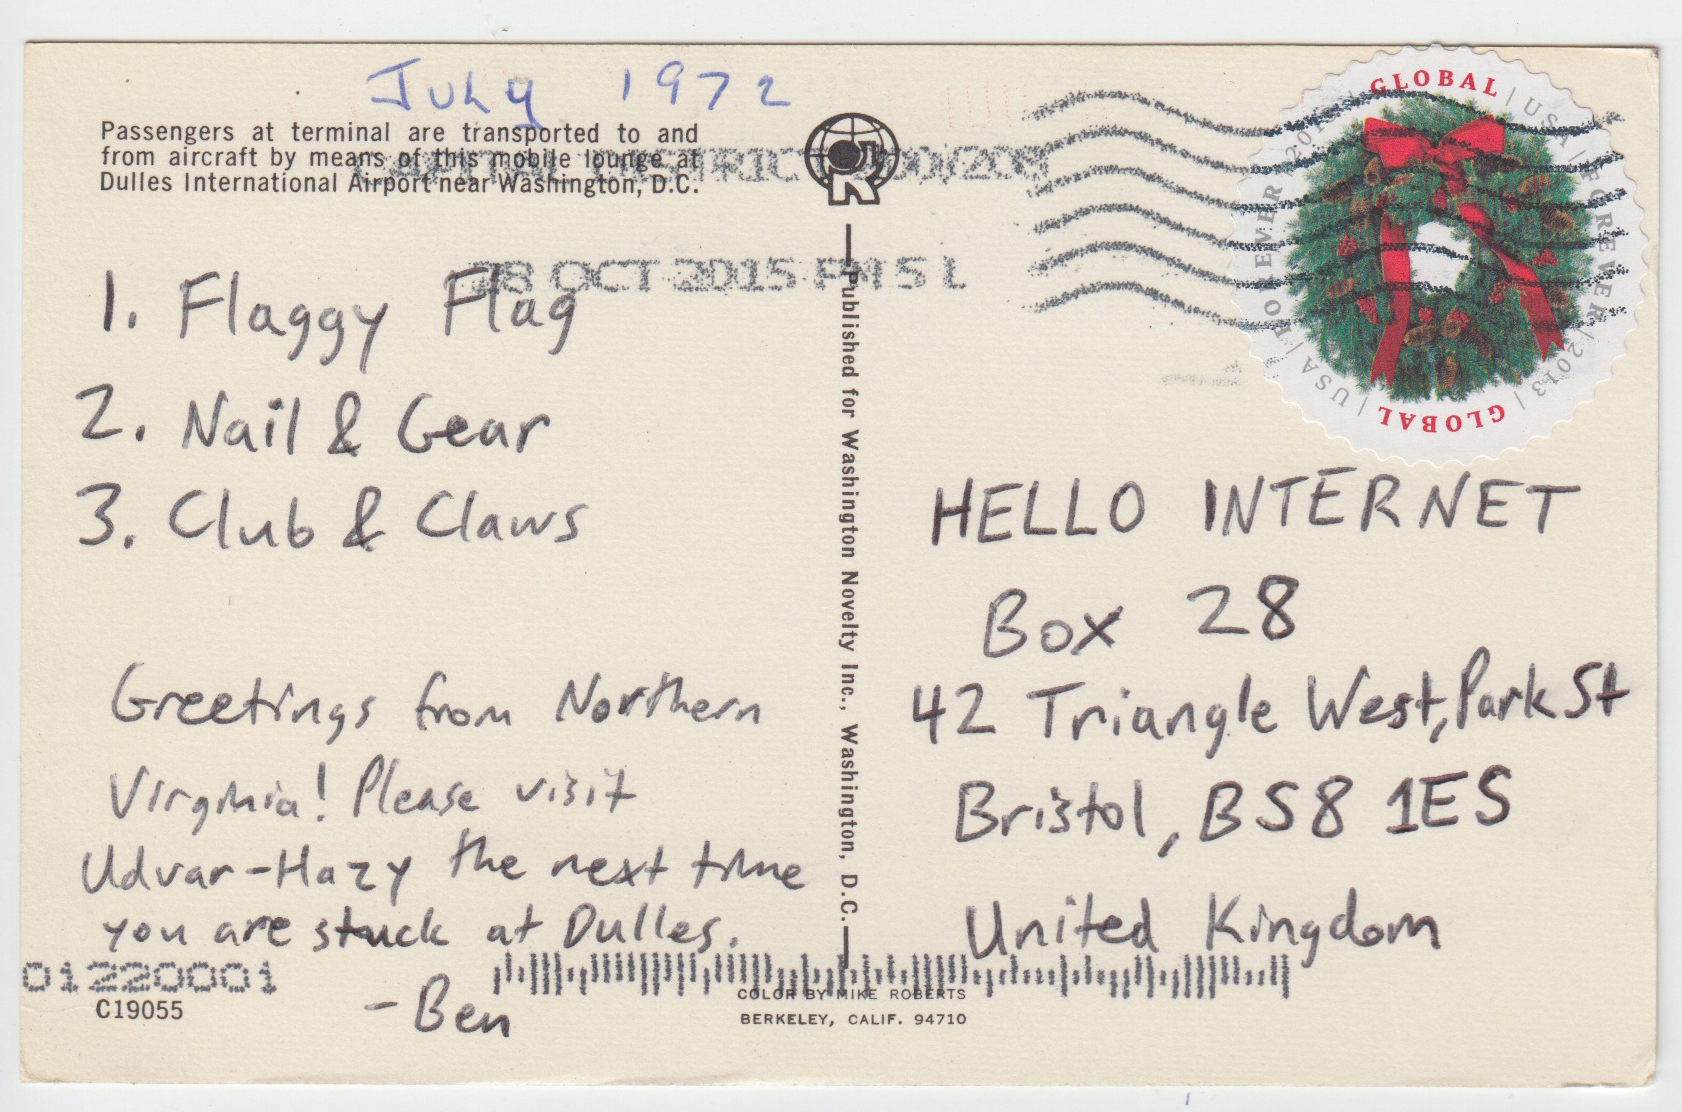 July 1972
Passengers at terminal are transported to and
from aircraft by means of this mobile lounge at
Dulles International Airport near Washington, D.C.
CAPITAL DISTRICT 200/208
28 OCT 2015 PM 5 L
GLOBAL | USA | FOREVER | 2013 | GLOBAL | USA | FOREVER 2013 |
1. Flaggy Flag
2. Nail & Gear
3. Club & Claws
Greetings from Northern
Virginia! Please visit
Udvar-Hazy the next time
you are stuck at Dulles.
- Ben
Published for Washington Novelty Inc., Washington, D.C.
HELLO INTERNET
Box 28
42 Triangle West, Park St
Bristol, BS8 1ES
United Kingdom
01220001
C19055
COLOR BY MIKE ROBERTS
BERKELEY, CALIF. 94710